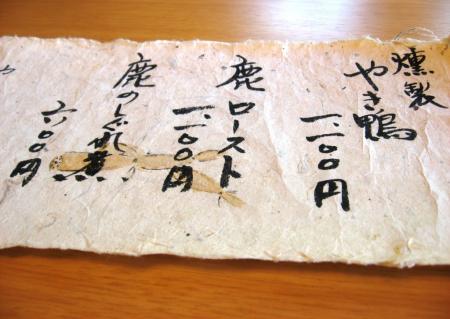 燻製
やき鴨
一、二〇〇円
鹿ロースト
一、二〇〇円
鹿のしぐれ煮
六〇〇円